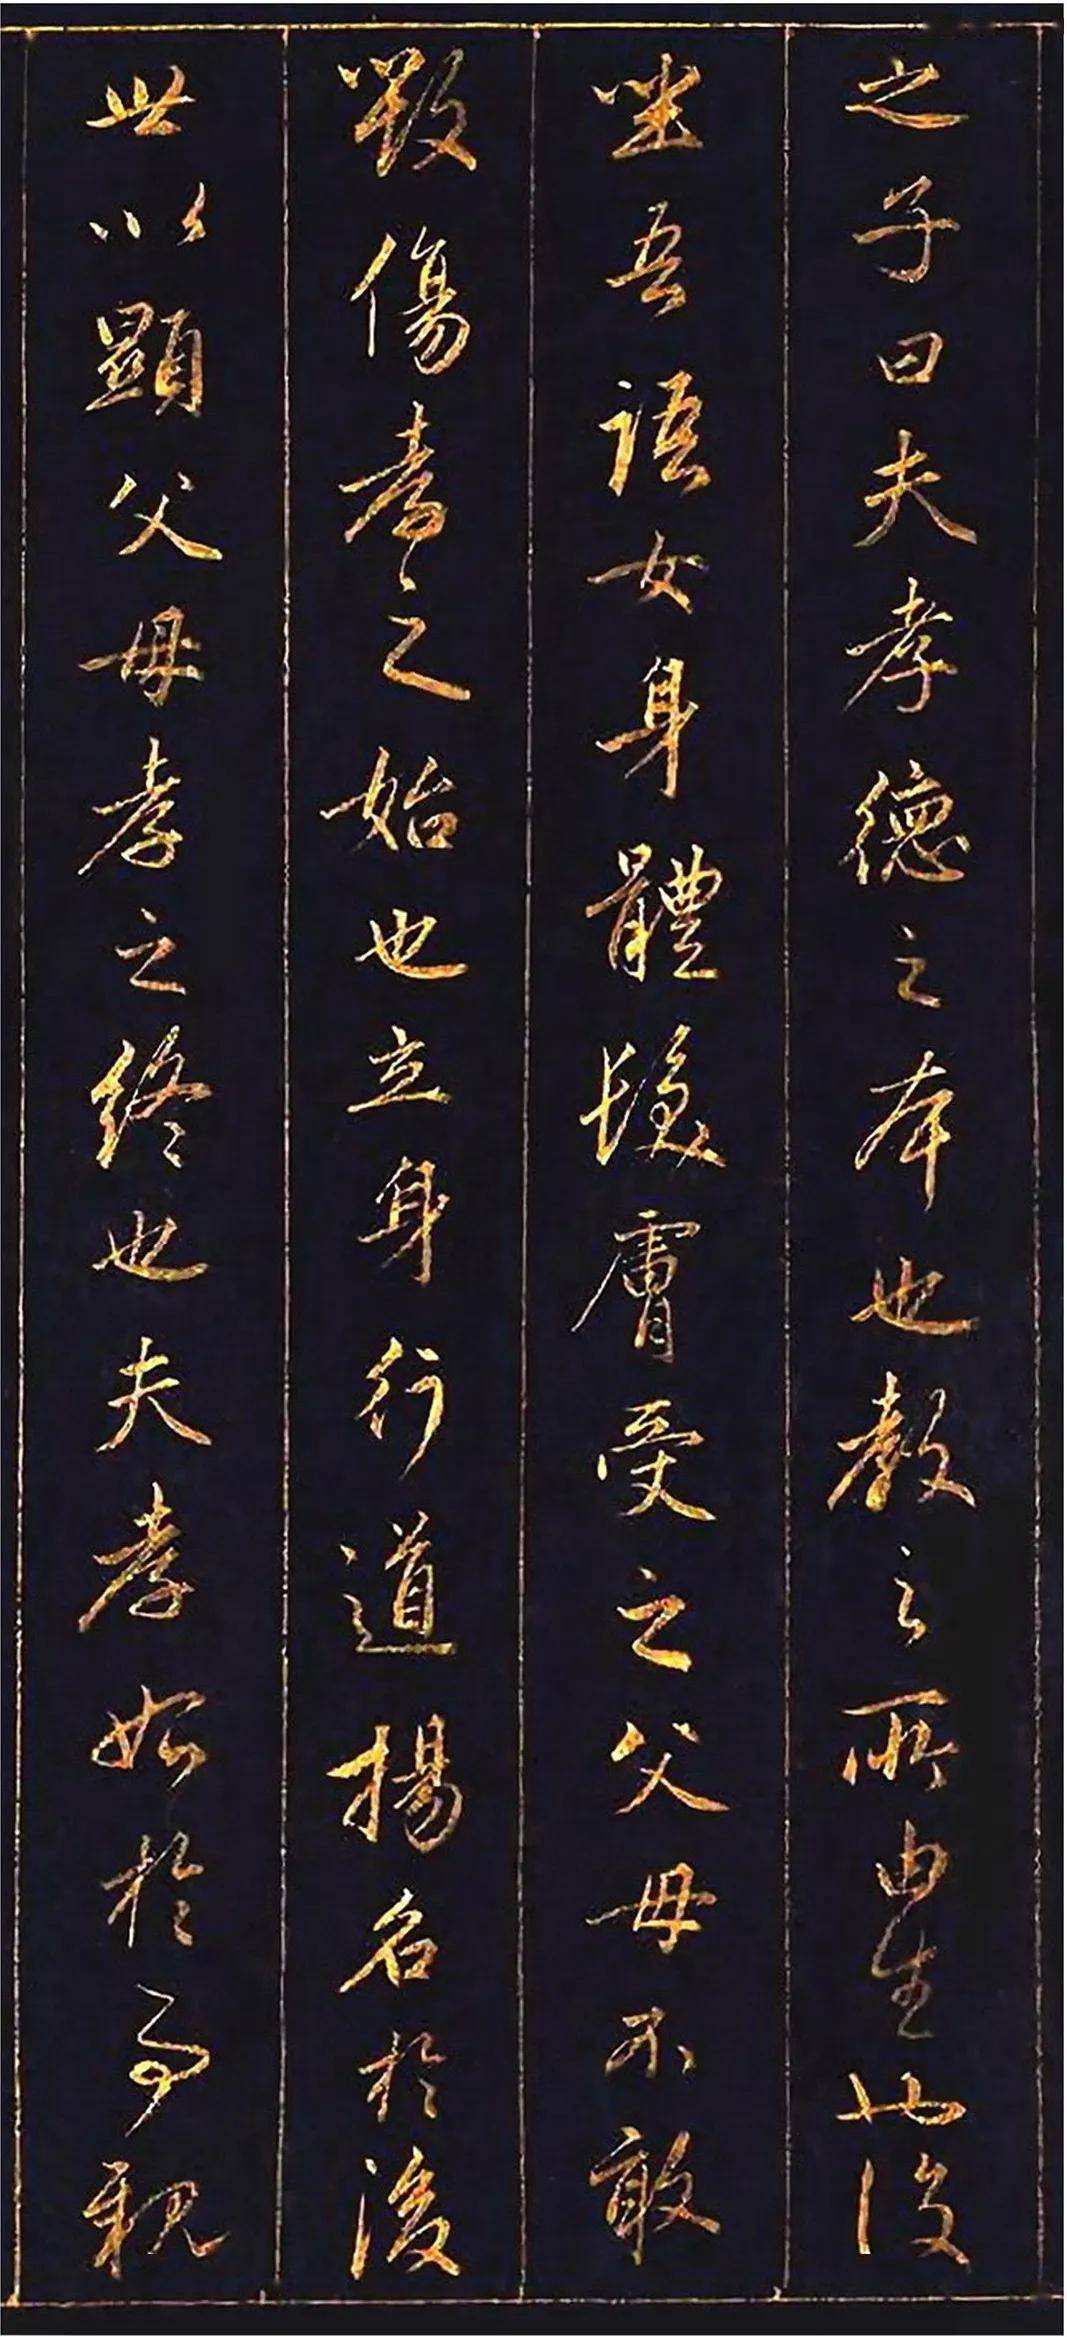 之子曰夫孝德之本也教之所由生也復
坐吾語女身體髮膚受之父母不敢
毀傷孝之始也立身行道揚名於後
世以顯父母孝之終也夫孝始於事親